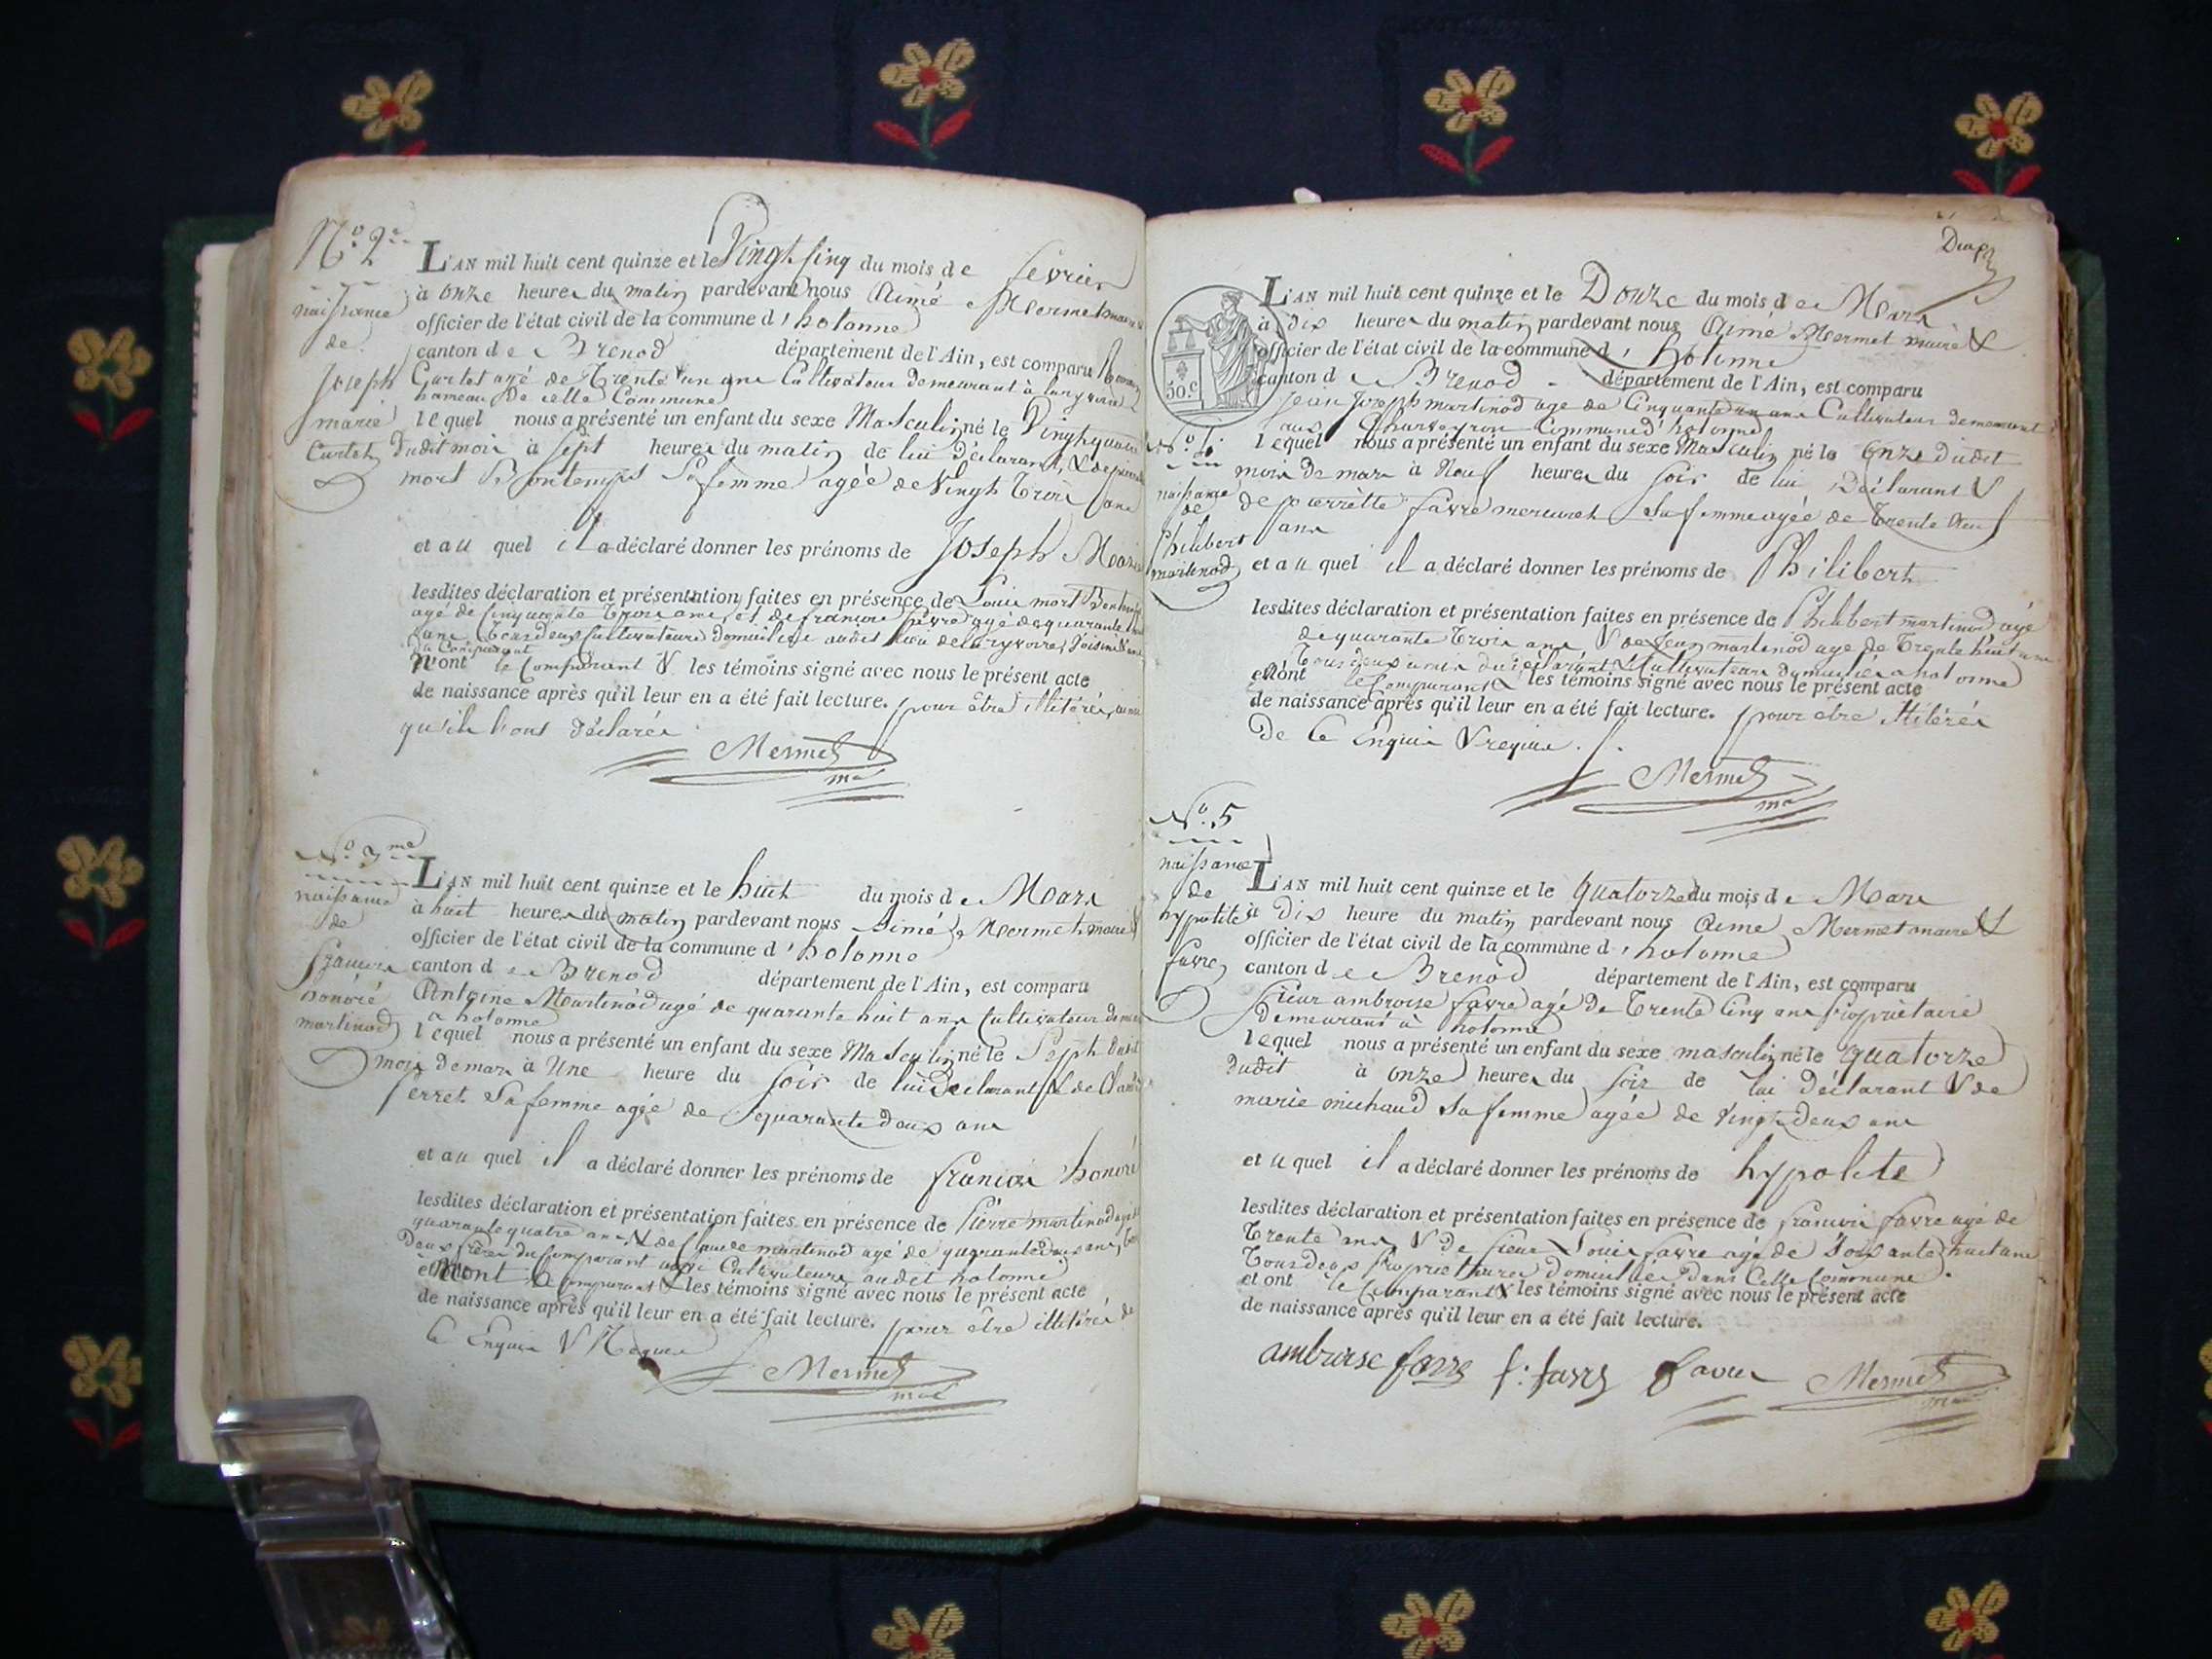 N.o 2.e
naissance
de
Joseph
marie
Curtet
L'AN mil huit cent quinze et le Vingt Cinq du mois de février
à onze heures du matin pardevant nous Aimé Mermet maire
officier de l'état civil de la commune d'hotonne
canton de Brenod département de l'Ain, est comparu
Curtet agé de Trente un ans Cultivateur demeurant à
hameau de cette Commune
lequel nous a présenté un enfant du sexe Masculin né le Vingt quatre
Dudit mois à sept heures du matin de lui déclarant, & de
mort Bontemps Sa femme agée de Vingt Trois ans
et au quel il a déclaré donner les prénoms de Joseph Marie
lesdites déclaration et présentation faites en présence de Louis mort Bontemps
agé de Cinquante Trois ans, et de françois agé de quarante
ans Tous deux Cultivateurs domiciliés audit lieu de voisins
du Comparant
N'ont le Comparant & les témoins signé avec nous le présent acte
de naissance après qu'il leur en a été fait lecture. pour être illitérés, ainsi
qu'ils l'ont déclaré
Mermet
N.o 3me
naissance
de
françois
honoré
martinod
L'AN mil huit cent quinze et le huit du mois de Mars
à huit heures du matin pardevant nous Aimé Mermet maire &
officier de l'état civil de la commune d'hotonne
canton de Brenod département de l'Ain, est comparu
Antoine Martinod agé de quarante huit ans Cultivateur
a hotonne
lequel nous a présenté un enfant du sexe Masculin né le Sept dudit
mois de mars à Une heure du soir de lui Déclarant & de
perret Sa femme agée de quarante deux ans
et au quel il a déclaré donner les prénoms de françois honoré
lesdites déclaration et présentation faites en présence de Pierre martinod agé de
quarante quatre ans & de Claude martinod agé de quarante deux ans,
Deux frères du Comparant aussi Cultivateurs audit hotonne
et N'ont le Comparant & les témoins signé avec nous le présent acte
de naissance après qu'il leur en a été fait lecture. pour être illitérés de
Ce Enquis & Requis
Mermet
50.c
N.o
naissance
de
Philibert
martinod
L'AN mil huit cent quinze et le Douze du mois de Mars
à dix heures du matin pardevant nous Aimé Mermet maire &
officier de l'état civil de la commune d'hotonne
canton de Brenod département de l'Ain, est comparu
Jean Joseph martinod agé de Cinquante un ans Cultivateur demeurant
aux Commune d'hotonne
lequel nous a présenté un enfant du sexe Masculin né le Onze dudit
mois de mars à Neuf heures du soir de lui Déclarant &
de pierrette favre mercuret Sa femme agée de Trente Neuf
ans
et au quel il a déclaré donner les prénoms de Philibert
lesdites déclaration et présentation faites en présence de Philibert martinod agé
de quarante Trois ans & de Jean martinod agé de Trente huit ans
Tous deux du déclarant & Cultivateurs domiciliés a hotonne
et N'ont le Comparant & les témoins signé avec nous le présent acte
de naissance après qu'il leur en a été fait lecture. pour être illitérés
de Ce Enquis & requis.
Mermet
N.o 5
naissance
de
hypolite
favre
L'AN mil huit cent quinze et le quatorze du mois de Mars
à Dix heure du matin pardevant nous Aimé Mermet maire &
officier de l'état civil de la commune d'hotonne
canton de Brenod département de l'Ain, est comparu
sieur ambroise favre agé de Trente Cinq ans propriètaire
demeurant à hotonne
lequel nous a présenté un enfant du sexe masculin né le quatorze
dudit à onze heures du soir de lui déclarant & de
marie michaud Sa femme agée de vingt deux ans
et u quel il a déclaré donner les prénoms de hypolite
lesdites déclaration et présentation faites en présence de françois favre agé de
Trente ans & de sieur Louis favre agé de Soixante huit ans
Tous deux proprietaires Domiciliés dans Cette Commune.
et ont le Comparant & les témoins signé avec nous le présent acte
de naissance après qu'il leur en a été fait lecture.
ambroise favre f. favre favre Mermet